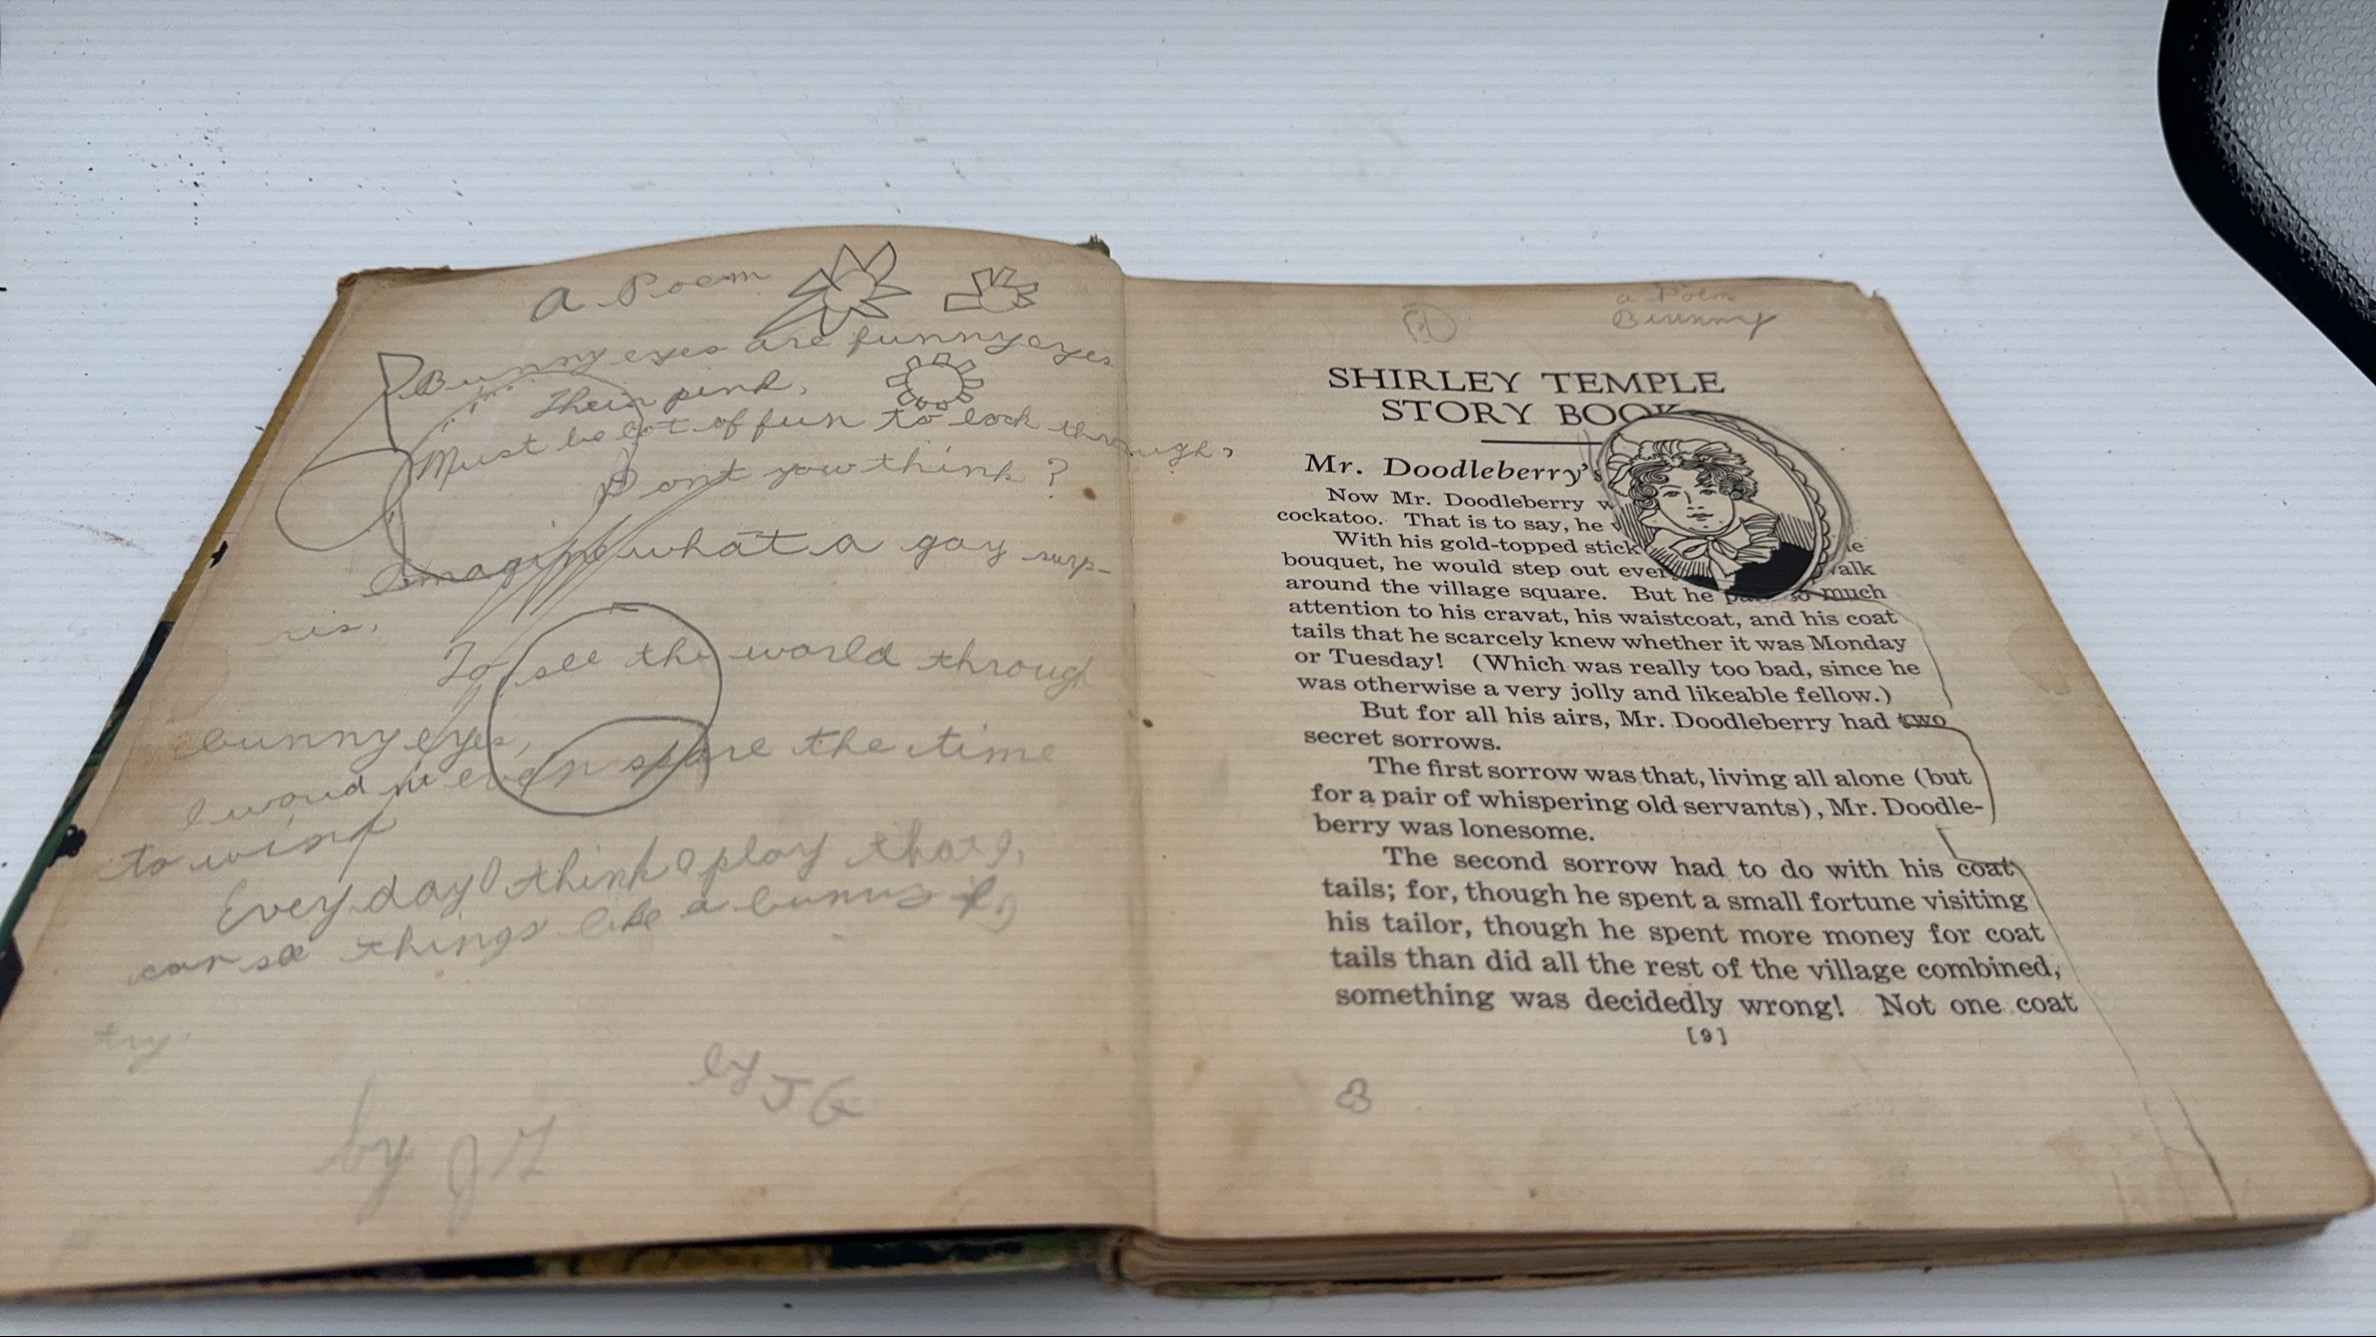 a Poem
Bunny eyes are funny eyes
Their pink,
Must be lot of fun to look through,
Dont you think?
Imagine what a gay surp-
ris,
To see the world through
bunny eyes,
I woud never spare the time
to wink
Every day I think I play that,
can see things like a bunny
try.
by J G
by J G
a Poem
Bunny
SHIRLEY TEMPLE
STORY BOOK
Mr. Doodleberry's
Now Mr. Doodleberry w
cockatoo. That is to say, he w
With his gold-topped stick
bouquet, he would step out ever alk
around the village square. But he so much
attention to his cravat, his waistcoat, and his coat
tails that he scarcely knew whether it was Monday
or Tuesday! (Which was really too bad, since he
was otherwise a very jolly and likeable fellow.)
But for all his airs, Mr. Doodleberry had two
secret sorrows.
The first sorrow was that, living all alone (but
for a pair of whispering old servants), Mr. Doodle-
berry was lonesome.
The second sorrow had to do with his coat
tails; for, though he spent a small fortune visiting
his tailor, though he spent more money for coat
tails than did all the rest of the village combined,
something was decidedly wrong! Not one coat
[9]